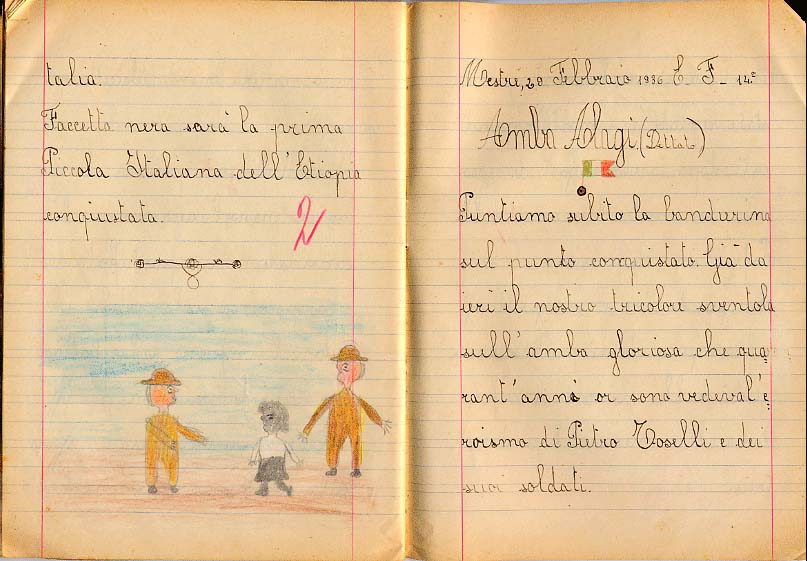 talia.
Faccetta nera sarà la prima
Piccola Italiana dell'Etiopia
conquistata.
2
Mestre, 20 Febbraio 1936 E. F. 14°
Amba Alagi. (Dettat.)
Puntiamo subito la bandierina
sul punto conquistato. Già da
ieri il nostro tricolore sventola
sull'amba gloriosa che qua=
rant'anni or sono vedeva l'e=
roismo di Pietro Toselli e dei
suoi soldati.